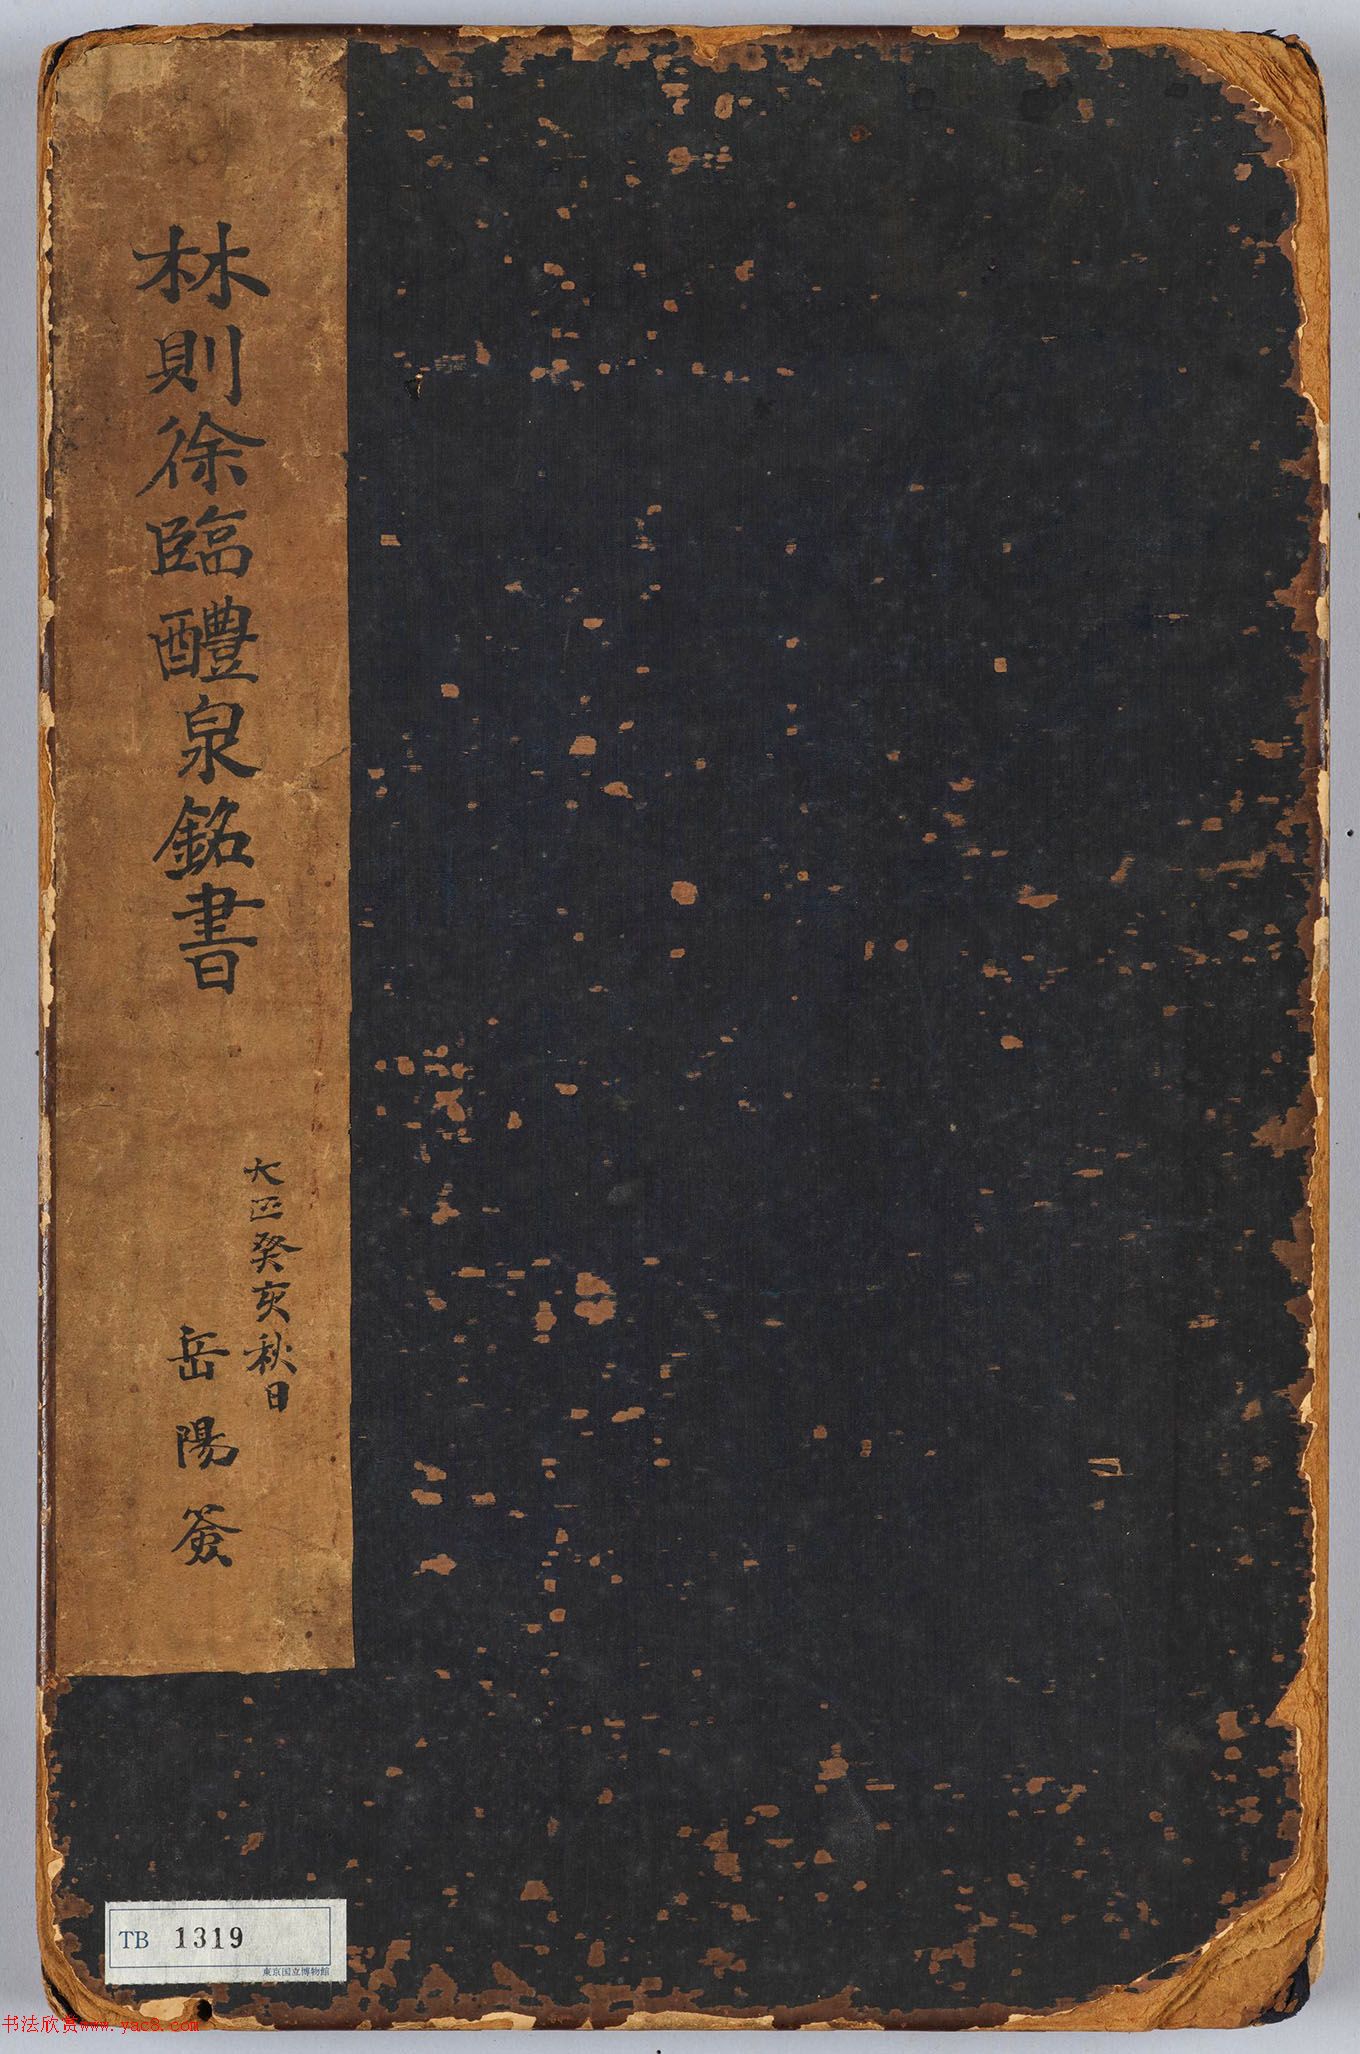 林則徐臨醴泉銘書
大正癸亥秋日
岳陽簽
TB 1319
東京国立博物館
书法欣赏www.yac8.com